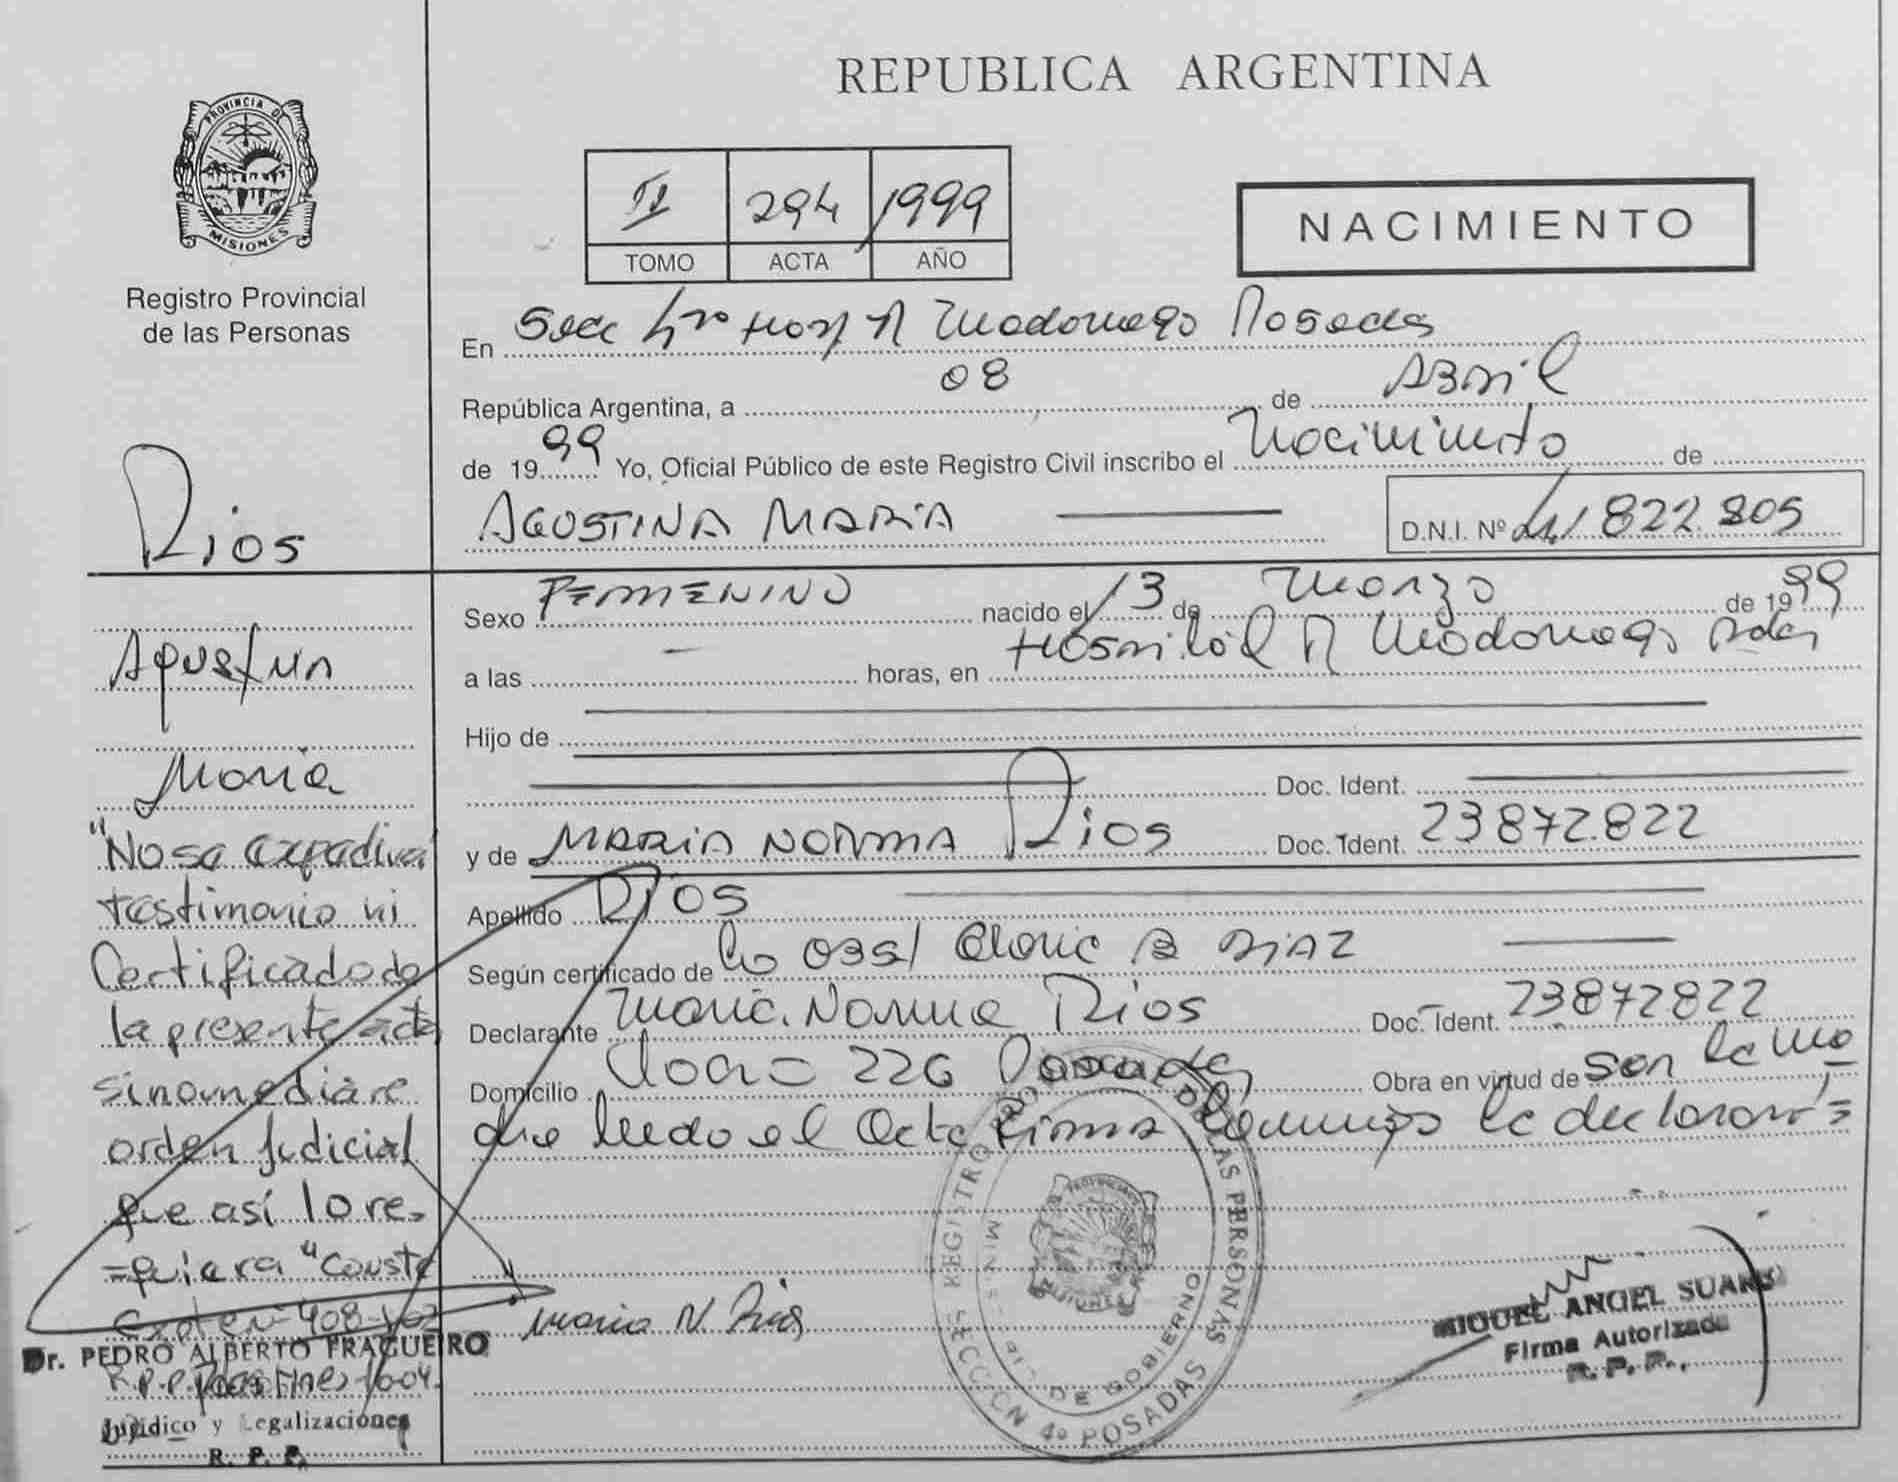 REPUBLICA ARGENTINA
PROVINCIA DE
MISIONES
Registro Provincial
de las Personas
II 294 1999
TOMO ACTA AÑO
NACIMIENTO
En Secc Hosp R Madariaga Posadas
República Argentina, a 08 de Abril
de 19 99 Yo, Oficial Público de este Registro Civil inscribo el Nacimiento de
AGUSTINA MARIA D.N.I. Nº 41 822.805
Rios
Agustina
Maria
Sexo FEMENINO nacido el 13 de Marzo de 19 99
a las — horas, en Hospital R Madariaga Pdas
Hijo de
Doc. Ident.
y de MARIA NORMA Rios Doc. Ident. 23872822
Apellido Rios
Según certificado de la Obst Gloria B DIAZ
Declarante Maria Norma Rios Doc. Ident. 23872822
Domicilio 226 Posadas Obra en virtud de ser la ma
dre leido el Acta Firma la declarante
"No se expedirá
testimonio ni
Certificado de
la presente acta
sino mediare
orden judicial
que así lo re-
=quiera" Conste
Expte nº 408-
Dr. PEDRO ALBERTO FRAGUEIRO
R.P.P.
Jurídico y Legalizaciones
R. P. P.
Maria N. Rios
REGISTRO DE LAS PERSONAS
SECCION 4º POSADAS
MINISTERIO DE GOBIERNO
PROVINCIA DE
MISIONES
MIGUEL ANGEL SUAREZ
Firma Autorizada
R. P. P.